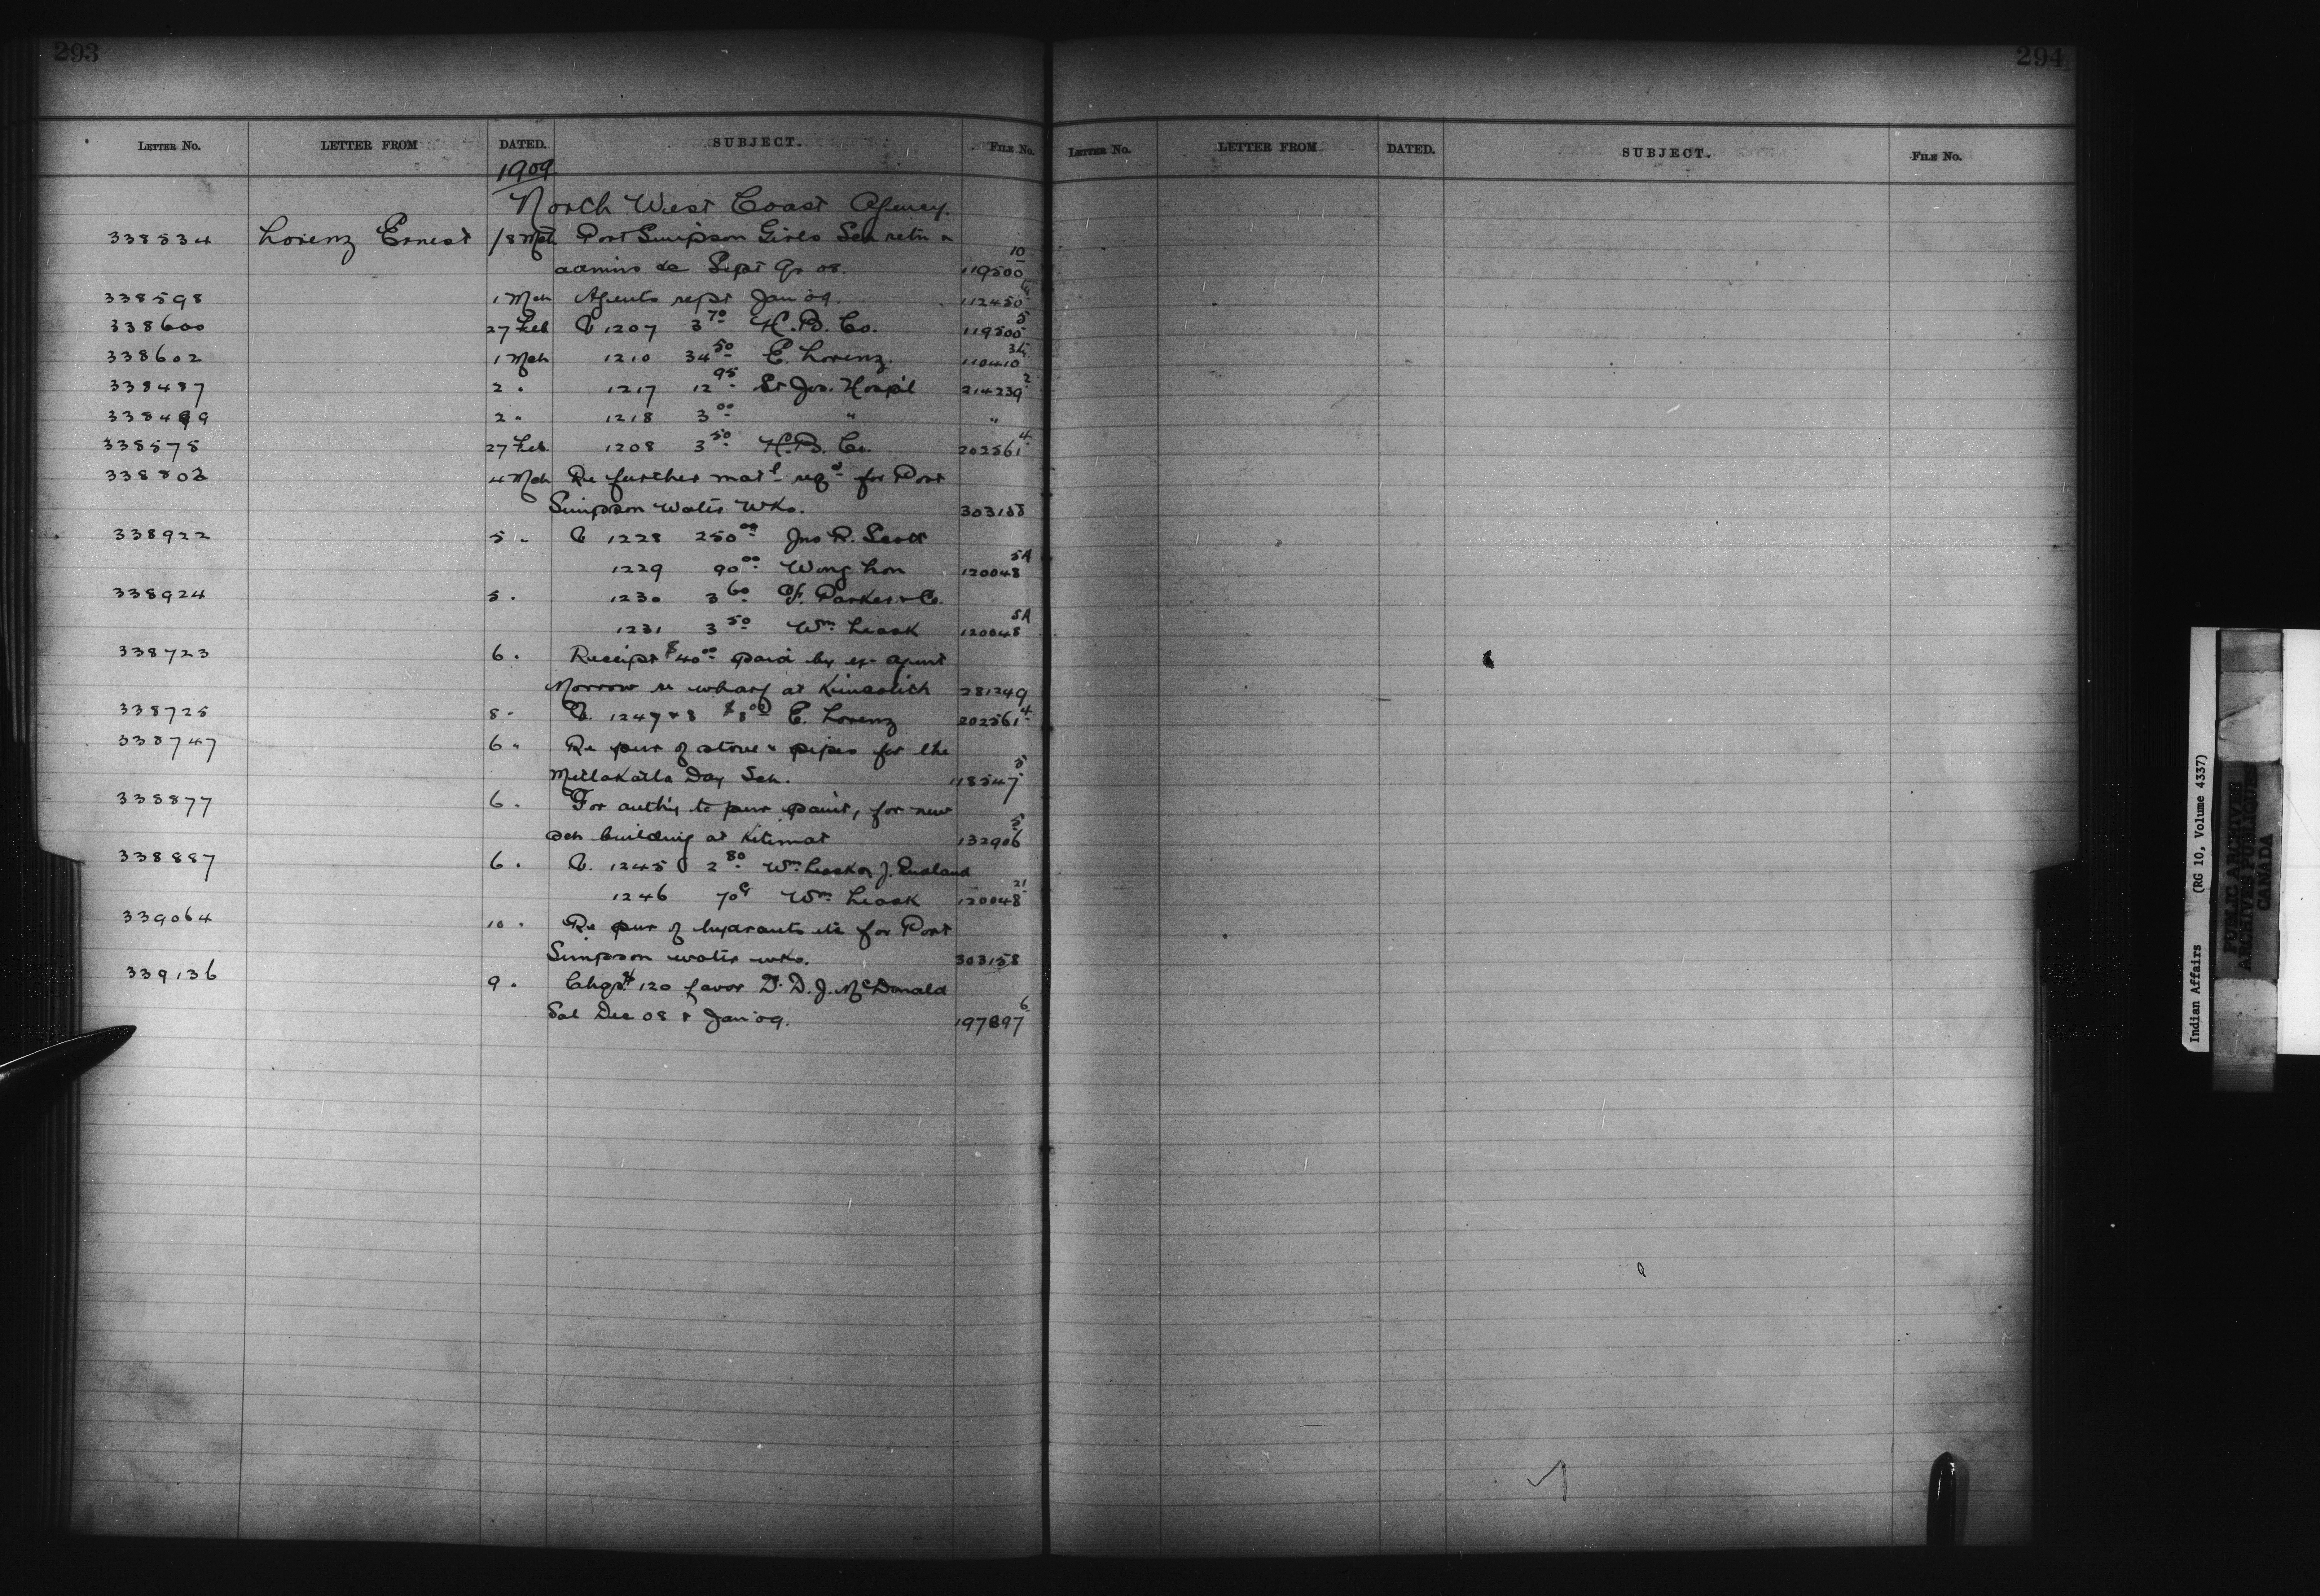 293
294
LETTER NO. LETTER FROM DATED. SUBJECT. FILE NO.
LETTER NO. LETTER FROM DATED. SUBJECT. FILE NO.
1909
North West Coast Agency.
338534 Lorenz Ernest 18 Mch Port Simpson Girls Sch retn
admins &c Sept Qr 08. 119500 10
338598 1 Mch Agents rept Jan 09. 112450
338600 27 Feb V 1207 3 70 H.B. Co. 119505 5
338602 1 Mch 1210 34 50 E. Lorenz. 110410
338487 2 " 1217 12 95 St Jos. Hospil 214239 2
338489 2 " 1218 3 00 " "
338575 27 Feb 1208 3 50 H.B. Co. 202561 4
338802 4 Mch Re further matl reqd for Port
Simpson Water Wks. 303158
338922 5 " V 1228 250 00 Jno R. Scott
1229 90 00 Wong Lon 120048 5A
338924 5 " 1230 3 60 F. Parker & Co.
1231 3 50 Wm Leask 120048 5A
338723 6 " Receipt $40 00 paid by ex-agent
Morrow re wharf at Kincolith 281249
338725 8 " V. 1247 & 8 $8 00 E. Lorenz 202561 4
338747 6 " Re pur of stove & pipes for the
Metlakatla Day Sch. 118547 5
338877 6 " For authy to pur paint, for new
sch building at Kitimat 132906 5
338887 6 " V. 1245 2 80 Wm Leask & J. England
1246 70c Wm Leask 120048 21
339064 10 " Re pur of hydrants etc for Port
Simpson water wks. 303158
339136 9 " Chq $120 favor D. D. J. McDonald
Sal Dec 08 & Jan 09. 197897 6
Indian Affairs (RG 10, Volume 4337)
PUBLIC ARCHIVES
ARCHIVES PUBLIQUES
CANADA